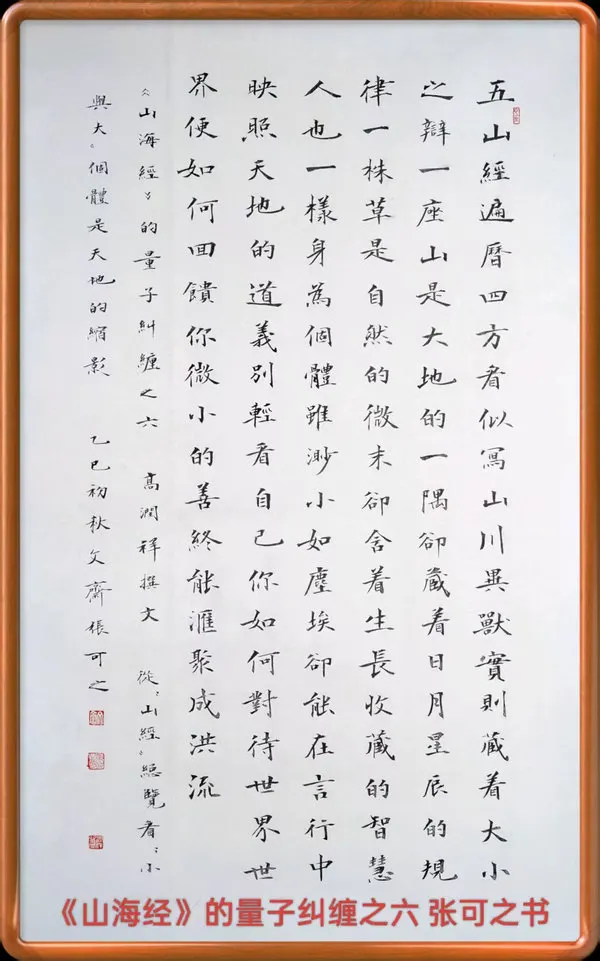 五山經遍曆四方看似寫山川異獸實則藏着大小
之辯一座山是大地的一隅卻藏着日月星辰的規
律一株草是自然的微末卻含着生長收藏的智慧
人也一樣身為個體雖渺小如塵埃卻能在言行中
映照天地的道義別輕看自己你如何對待世界世
界便如何回饋你微小的善終能滙聚成洪流
《山海經》的量子糾纏之六 高潤祥撰文 從“山經”總覽看“小
與大”個體是天地的縮影 乙巳初秋文齋張可之
《山海经》的量子纠缠之六 张可之书